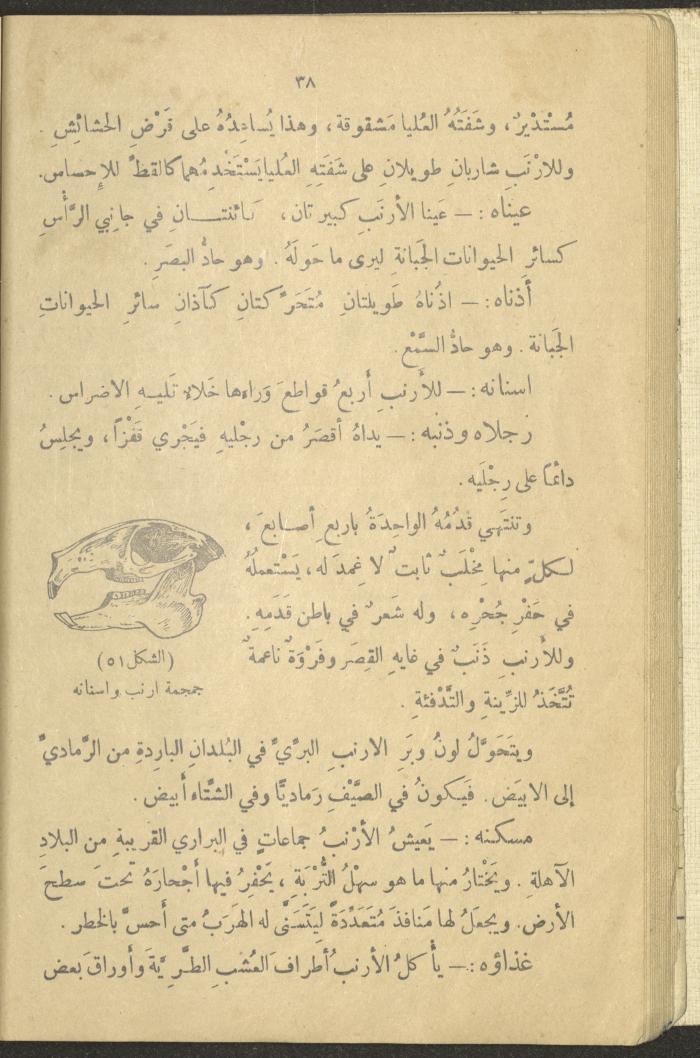 ٣٨
مُسْتَدْيرٌ، وشَفَتُهُ العُليا مَشقوقة، وهذا يُساعِدُهُ على قَرْضِ الحشائِشِ .
وللارْنَبِ شاربانِ طويلانِ على شَفَتِهِ العُليا يَسْتَخْدِمُهما كالقطِّ للإِحساس.
عيناه : — عَينا الأرنَبِ كبيرتان، نائتتــانِ في جانِبي الرَّأْسِ
كسائر الحيوانات الجَبانةِ ليرى ما حَولَهُ . وهو حادُّ البصَرِ .
أُذناه : — اذُناهُ طَويلتانِ مُتَحَرِّكتانِ كـآذانِ سائرِ الحيواناتِ
الجَبانة . وهو حادُّ السَّمْع .
اسنانه : — للأرنبِ أربعُ قواطعَ وَراءها خَلاء تَليـهِ الاضراس .
رجلاه وذنبه : — يداهُ أقصَرُ من رِجْليهِ فيَجْري قَفْزاً، ويجلِسُ
دائمًا على رِجْلَيه .
وتنتَهي قدُمُهُ الواحِدَةُ باربعِ أصــابعَ ،
لـكلٍّ منها مِخْلَبٌ ثابتٌ لا غِمدَ له، يَسْتعملُهُ
في حَفْرِ جُحْرِه، وله شَعرٌ في باطن قَدَمِهِ .
وللأرنبِ ذَنَبٌ في غايه القِصَر وفَرْوَةٌ ناعمةٌ
تُتَّخَذُ للزِّينةِ والتَّدْفئةِ .
(الشكل ٥١)
جمجمة ارنب واسنانه
ويتَحَوَّلُ لونُ وبَرِ الارنبِ البرِّيِّ في البُلدانِ البارِدةِ من الرَّماديِّ
إلى الابيَض. فيَـكونُ في الصَّيْفِ رَماديًّا وفي الشِّتاء أَبيض .
مسكنه : — يَعيشُ الأرْنبُ جماعاتٍ في البراري القريبةِ من البلادِ
الآهلةِ . ويَخْتارُ منها ما هو سهْلُ التُّرْبَةِ ، يَحْفِرُ فيها أَجْحارَهُ تحتَ سطحِ
الأرض. ويجعَلُ لها مَنافذَ مُتَعَدِّدَةً ليَتَسَنَّى له الهَرَبُ متى أَحسَّ بالخطر .
غذاؤه : — يأْكلُ الأرنبُ أطرافَ العُشبِ الطَّرِيَّةَ وأَوراقَ بعض